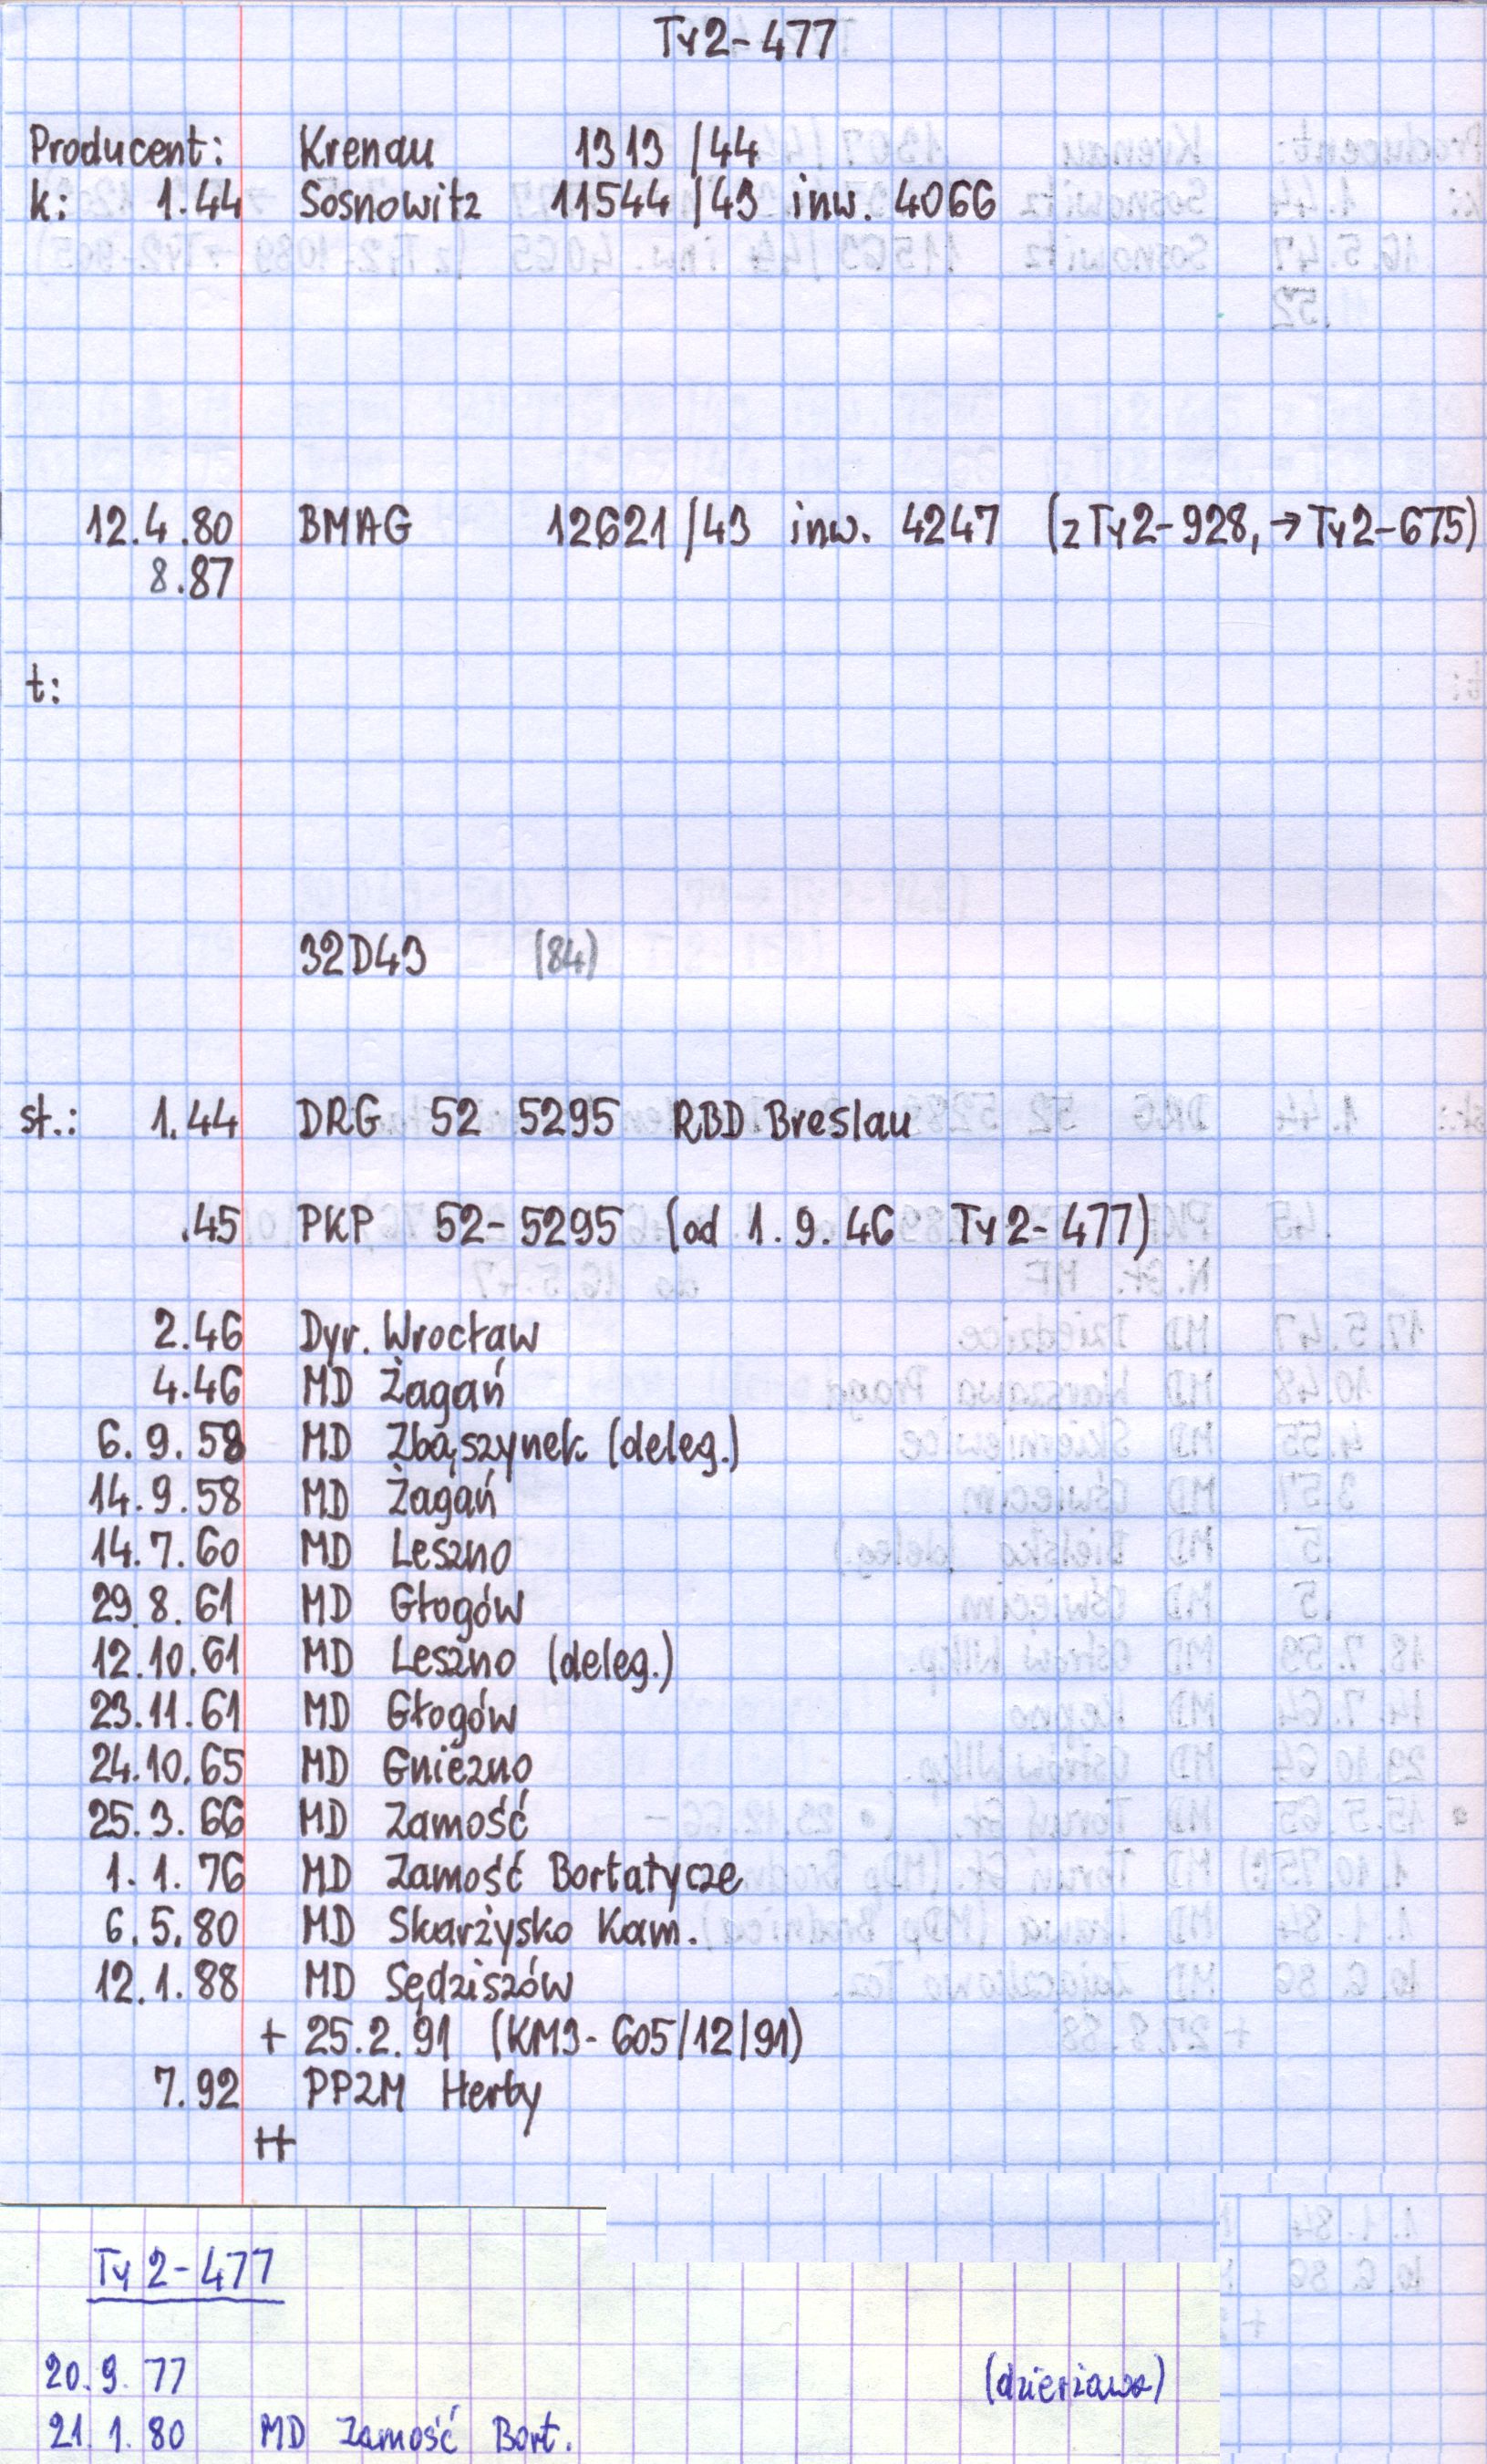 Ty2-477
Producent: Krenau 1313/44
k: 1.44 Sosnowitz 11544/43 inw. 4066
12.4.80 BMAG 12621/43 inw. 4247 (z Ty2-928, → Ty2-675)
8.87
t:
32D43 (84)
st.: 1.44 DRG 52 5295 RBD Breslau
.45 PKP 52-5295 (od 1.9.46 Ty2-477)
2.46 Dyr. Wrocław
4.46 MD Żagań
6.9.58 MD Zbąszynek (deleg.)
14.9.58 MD Żagań
14.7.60 MD Leszno
29.8.61 MD Głogów
12.10.61 MD Leszno (deleg.)
23.11.61 MD Głogów
24.10.65 MD Gniezno
25.3.66 MD Zamość
1.1.76 MD Zamość Bortatycze
6.5.80 MD Skarżysko Kam.
12.1.88 MD Sędziszów
+ 25.2.91 (KM3-605/12/91)
7.92 PPZM Herby
++
Ty2-477
20.9.77 (dzierżawa)
21.1.80 MD Zamość Bort.